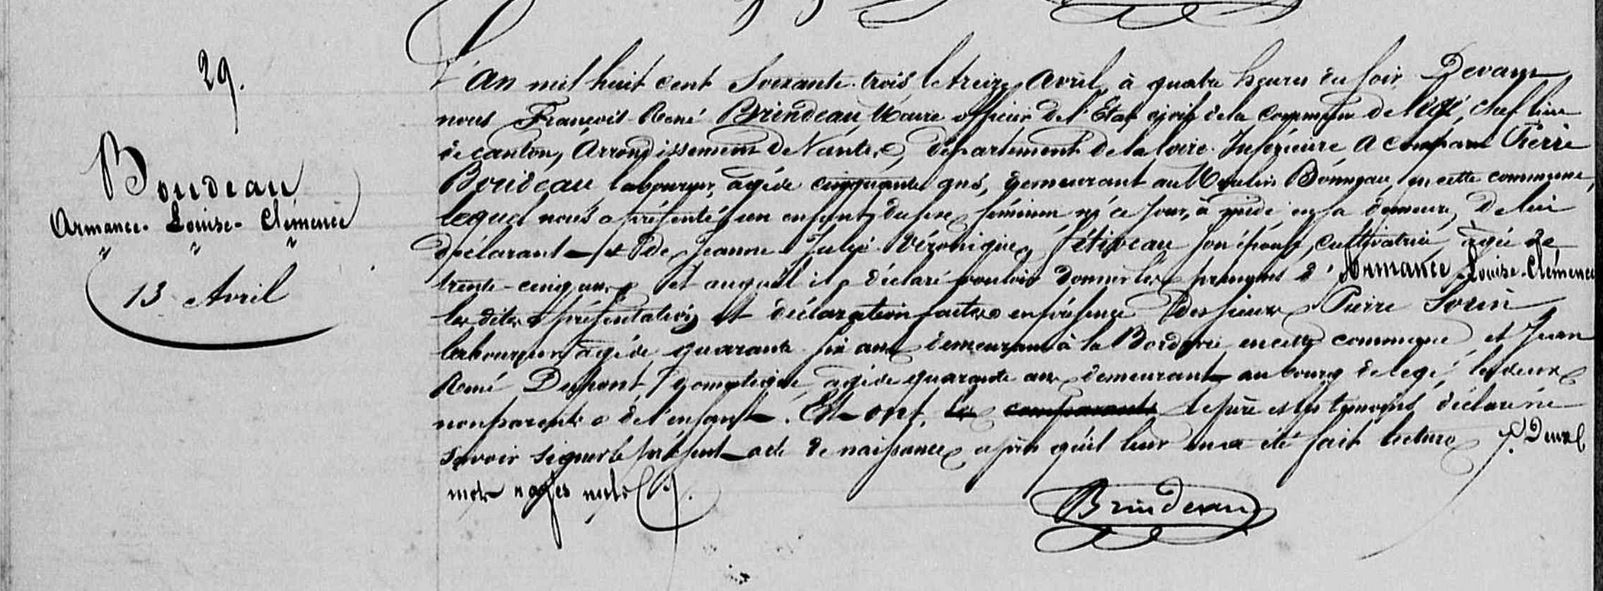 29.
Boudeau
Armance-Louise-Clémence
13 Avril
L'an mil huit cent Soixante-trois le treize Avril, à quatre heures du soir, Devant
nous François René Brindeau Maire officier de l'Etat civil de la Commune de Legé, chef lieu
de canton, Arrondissement de Nantes, département de la Loire Inférieure, a comparu Pierre
Boudeau laboureur, agé de cinquante ans, demeurant au Moulin Bonneau, en cette commune,
lequel nous a présenté un enfant du sexe féminin né ce jour, à midi en sa demeure, de lui
déclarant et de Jeanne Julie Véronique son épouse, cultivatrice, agée de
trente-cinq ans, et auquel il a déclaré vouloir donner les prénoms d'Armance-Louise-Clémence
les dites présentation et déclaration faites en présence des sieurs Pierre Sorin
laboureur, agé de quarante six ans demeurant à la Borderie en cette commune, et Jean
René Dupont, domestique, agé de quarante ans demeurant au bourg de Legé, les deux
non parents de l'enfant. Et ont, les comparants le père et les témoins, déclaré ne
savoir signer le présent acte de naissance, après qu'il leur en a été fait lecture. Deux
mots rayés nuls.
Brindeau